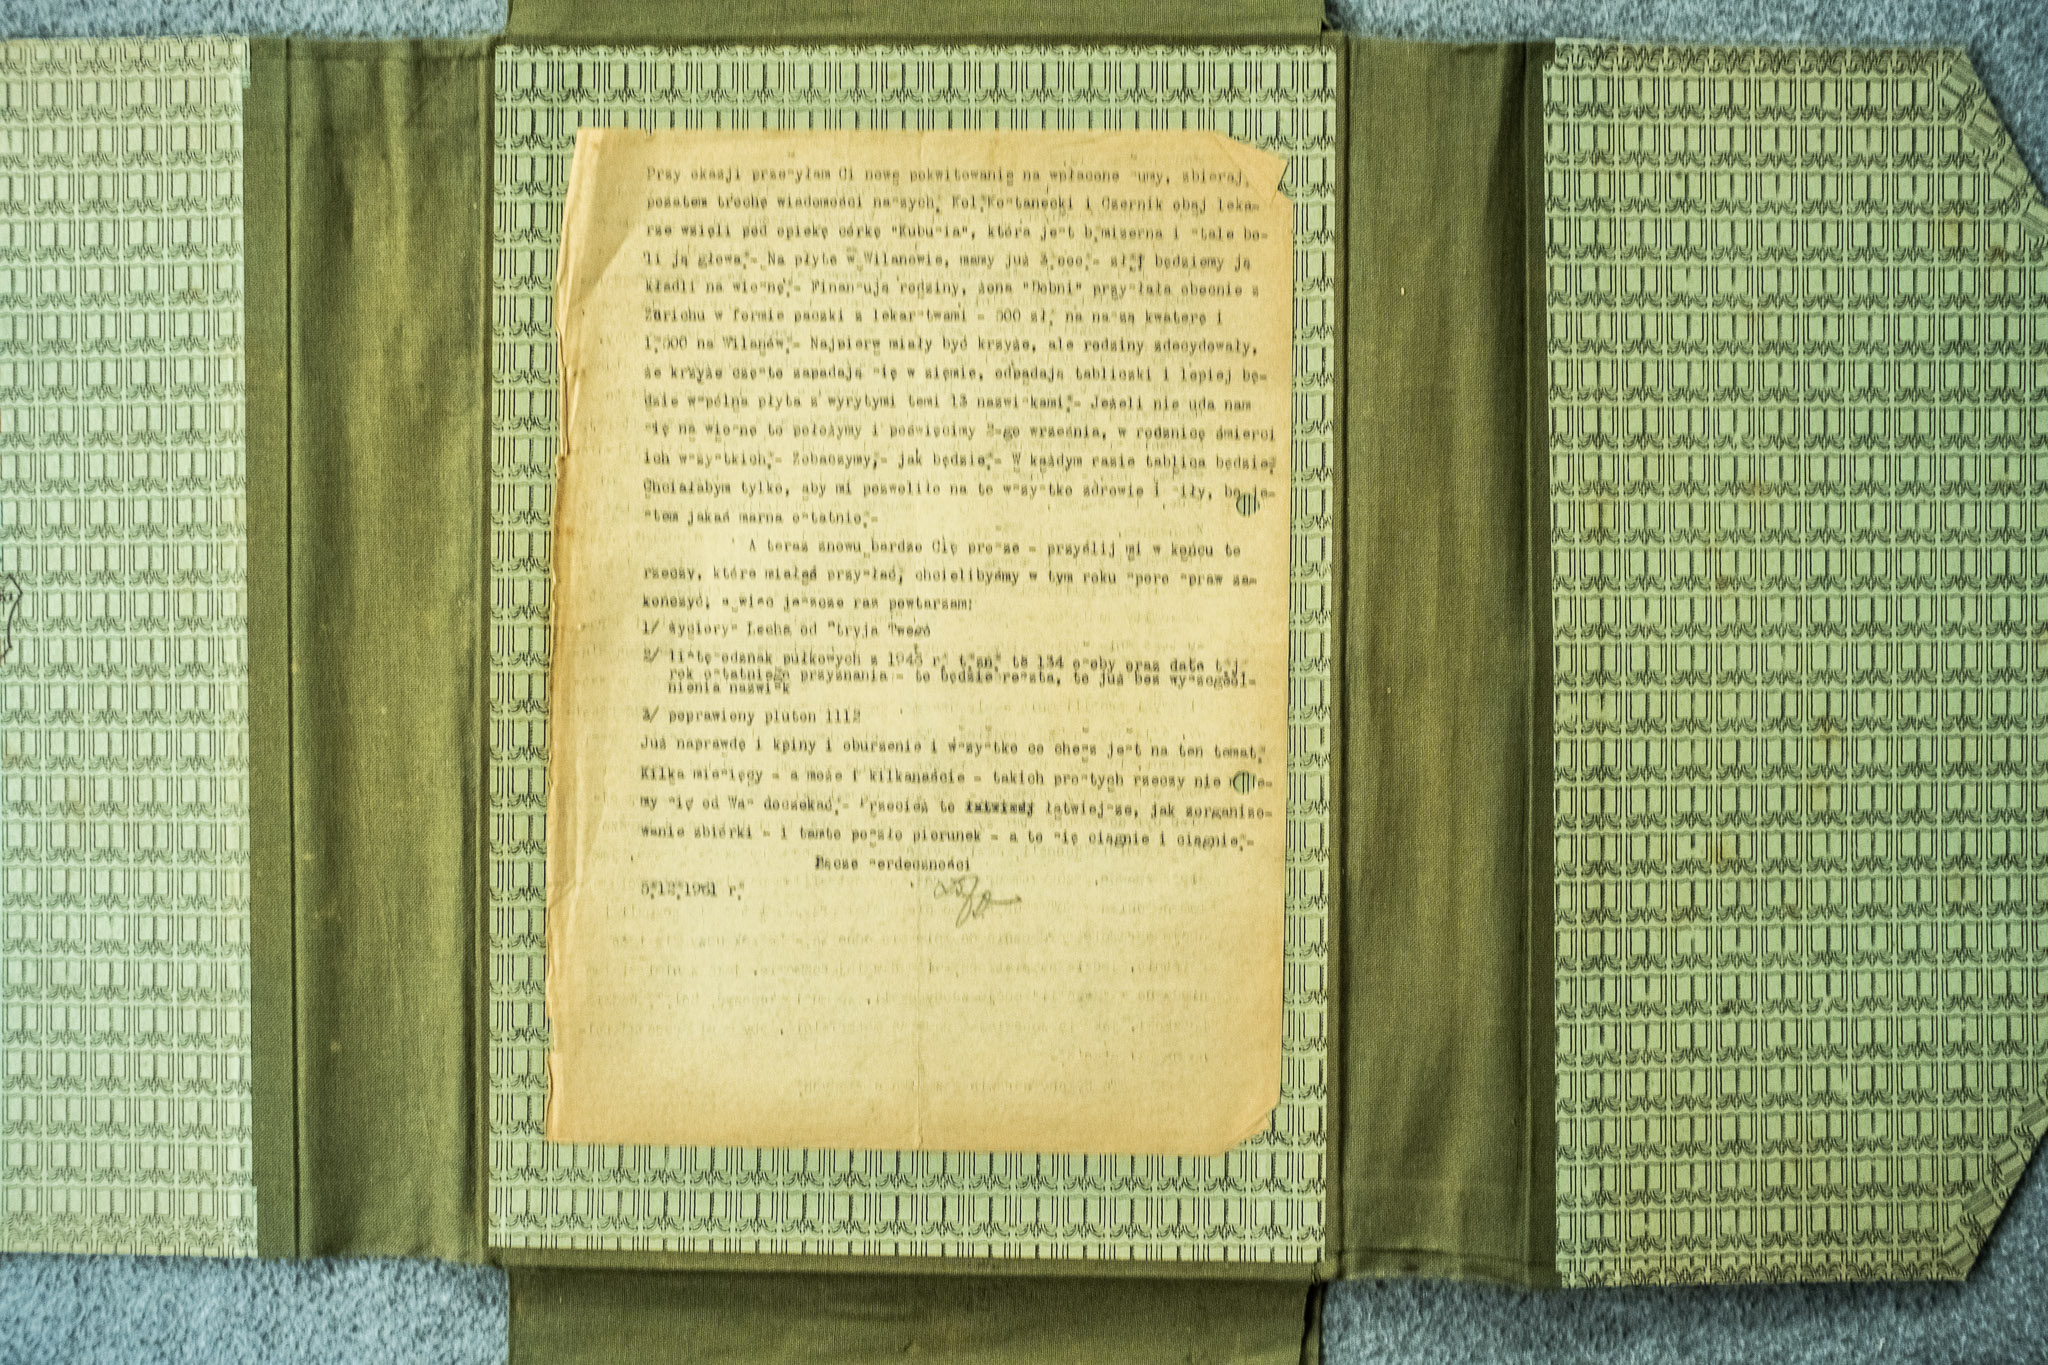 Przy okazji przesyłam Ci nowe pokwitowanie na wpłacone sumy, zbieraj,
pozatem trochę wiadomości naszych. Kol. Kostanecki i Czernik obaj leka-
rze wzięli pod opiekę córkę "Kubusia", która jest b.mizerna i stale bo-
li ją głowa.- Na płytę w Wilanowie, mamy już 3.000.- zł. będziemy ją
kładli na wiosnę.- Finansują rodziny, żona "Dobni" przysłała obecnie z
Zürichu w formie paczki z lekarstwami - 500 zł. na naszą kwaterę i
1.500 na Wilanów.- Najpierw miały być krzyże, ale rodziny zdecydowały,
że krzyże często zapadają się w ziemię, odpadają tabliczki i lepiej bę-
dzie wspólna płyta z wyrytymi temi 13 nazwiskami.- Jeżeli nie uda nam
się na wiosnę to położymy i poświęcimy 2-go września, w rocznicę śmierci
ich wszystkich.- Zobaczymy,- jak będzie.- W każdym razie tablica będzie.
Chciałabym tylko, aby mi pozwoliło na to wszystko zdrowie i siły, bo je-
stem jakaś marna ostatnio.-
A teraz znowu bardzo Cię prosze - przyślij mi w końcu te
rzeczy, które miałaś przysłać, chcielibyśmy w tym roku sporo spraw za-
kończyć, a więc jeszcze raz powtarzam:
1/ życiorys Lecha od Stryja Twego
2/ listę odznak pułkowych z 1943 r. t.zn. te 134 osoby oraz data t.j.
rok ostatniego przyznania - to będzie reszta, to już bez wyszczegól-
nienia nazwisk
3/ poprawiony pluton 1112
Już naprawdę i kpiny i oburzenie i wszystko co chcesz jest na ten temat.
Kilka miesięcy - a może i kilkanaście - takich prostych rzeczy nie może-
my się od Was doczekać.- Przecież to łatwiejsze, jak zorganizo-
wanie zbiórki - i tamto poszło piorunem - a to się ciągnie i ciągnie.-
Łączę serdeczności
5.12.1961 r.